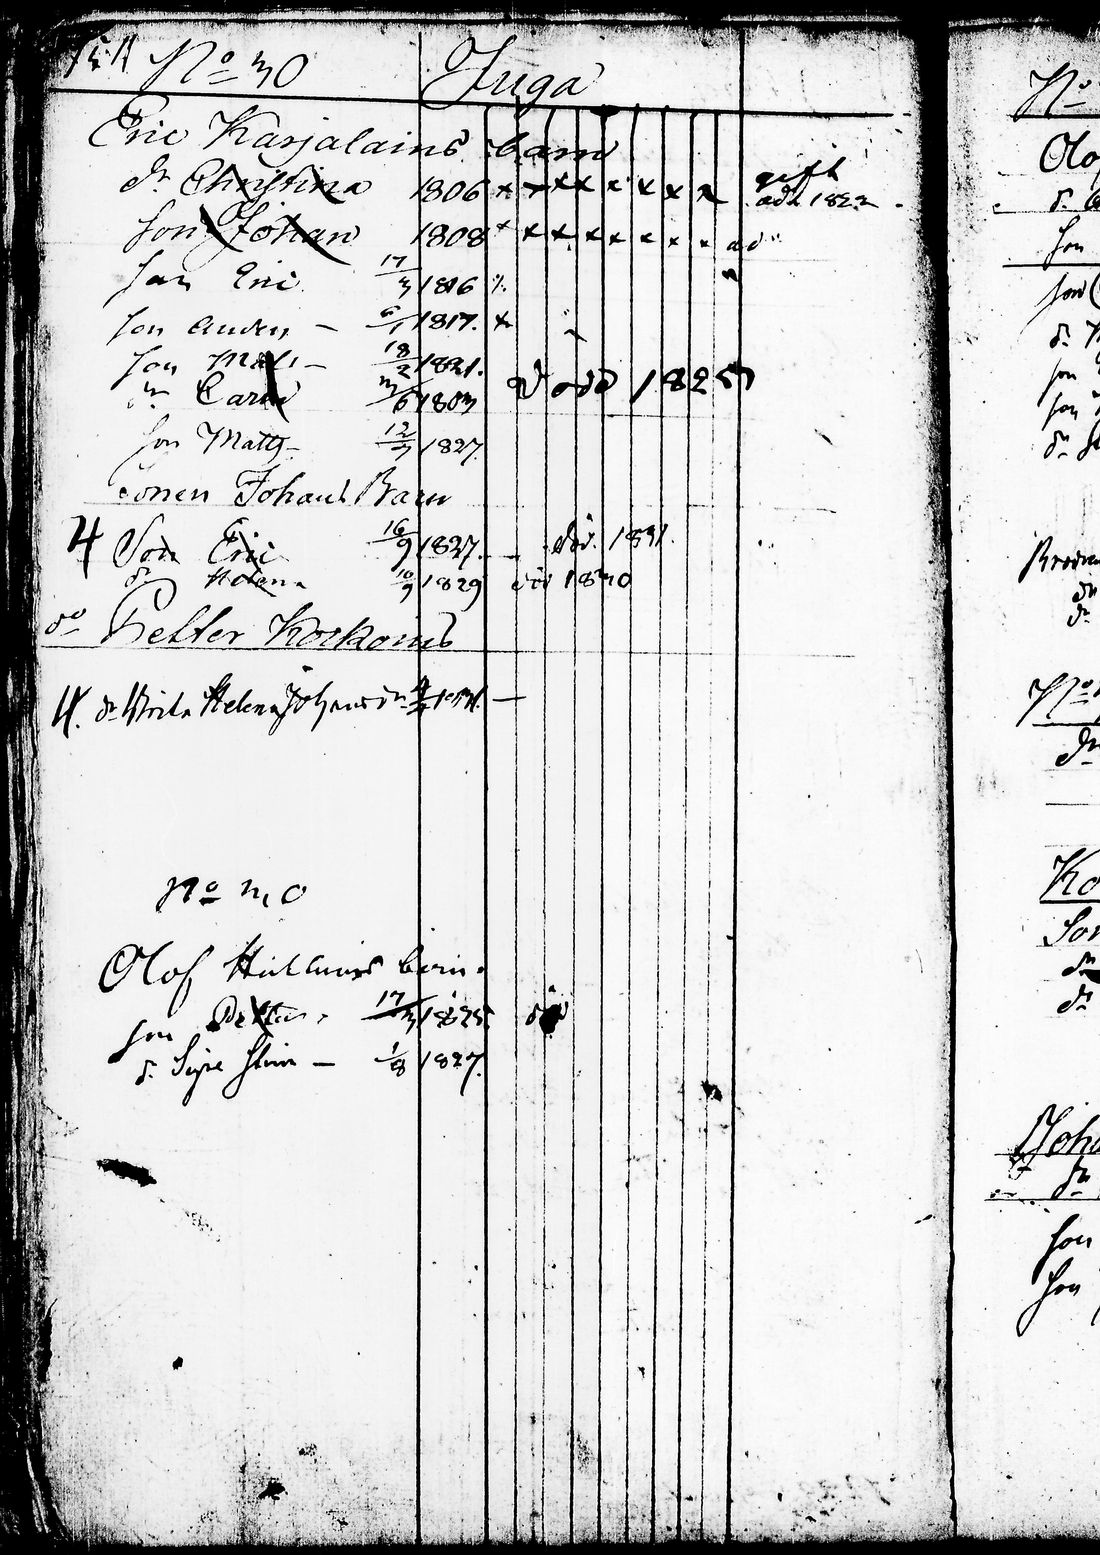 154 No 30 Juga
Eric Karjalains barn
dr Christina 1806 x x x x x x x x gift
adm 1822
Son Johan 1808 x x x x x x x x ad
Son Eric 17/3 1816
Son Anders – 6/1 1817. x
Son Matts – 18/2 1821.
dr Carin 3/6 1803 död 1825
Son Matts – 12/3 1827.
Sonen Johans Barn
4 Son Eric 16/9 1827. – död. 1831.
dr Helena 10/9 1829 död 1830
do Petter Korhoins
4. dr Helena –
No 30
Olof barn.
Son Petter 17/3 1825.
d. Stina – 1/8 1827.
No
Olof
d.
Son
Son
d.
Son
Son
dr
No
dr
Ko
Son
dr
dr
Joha
dr
Son
Son